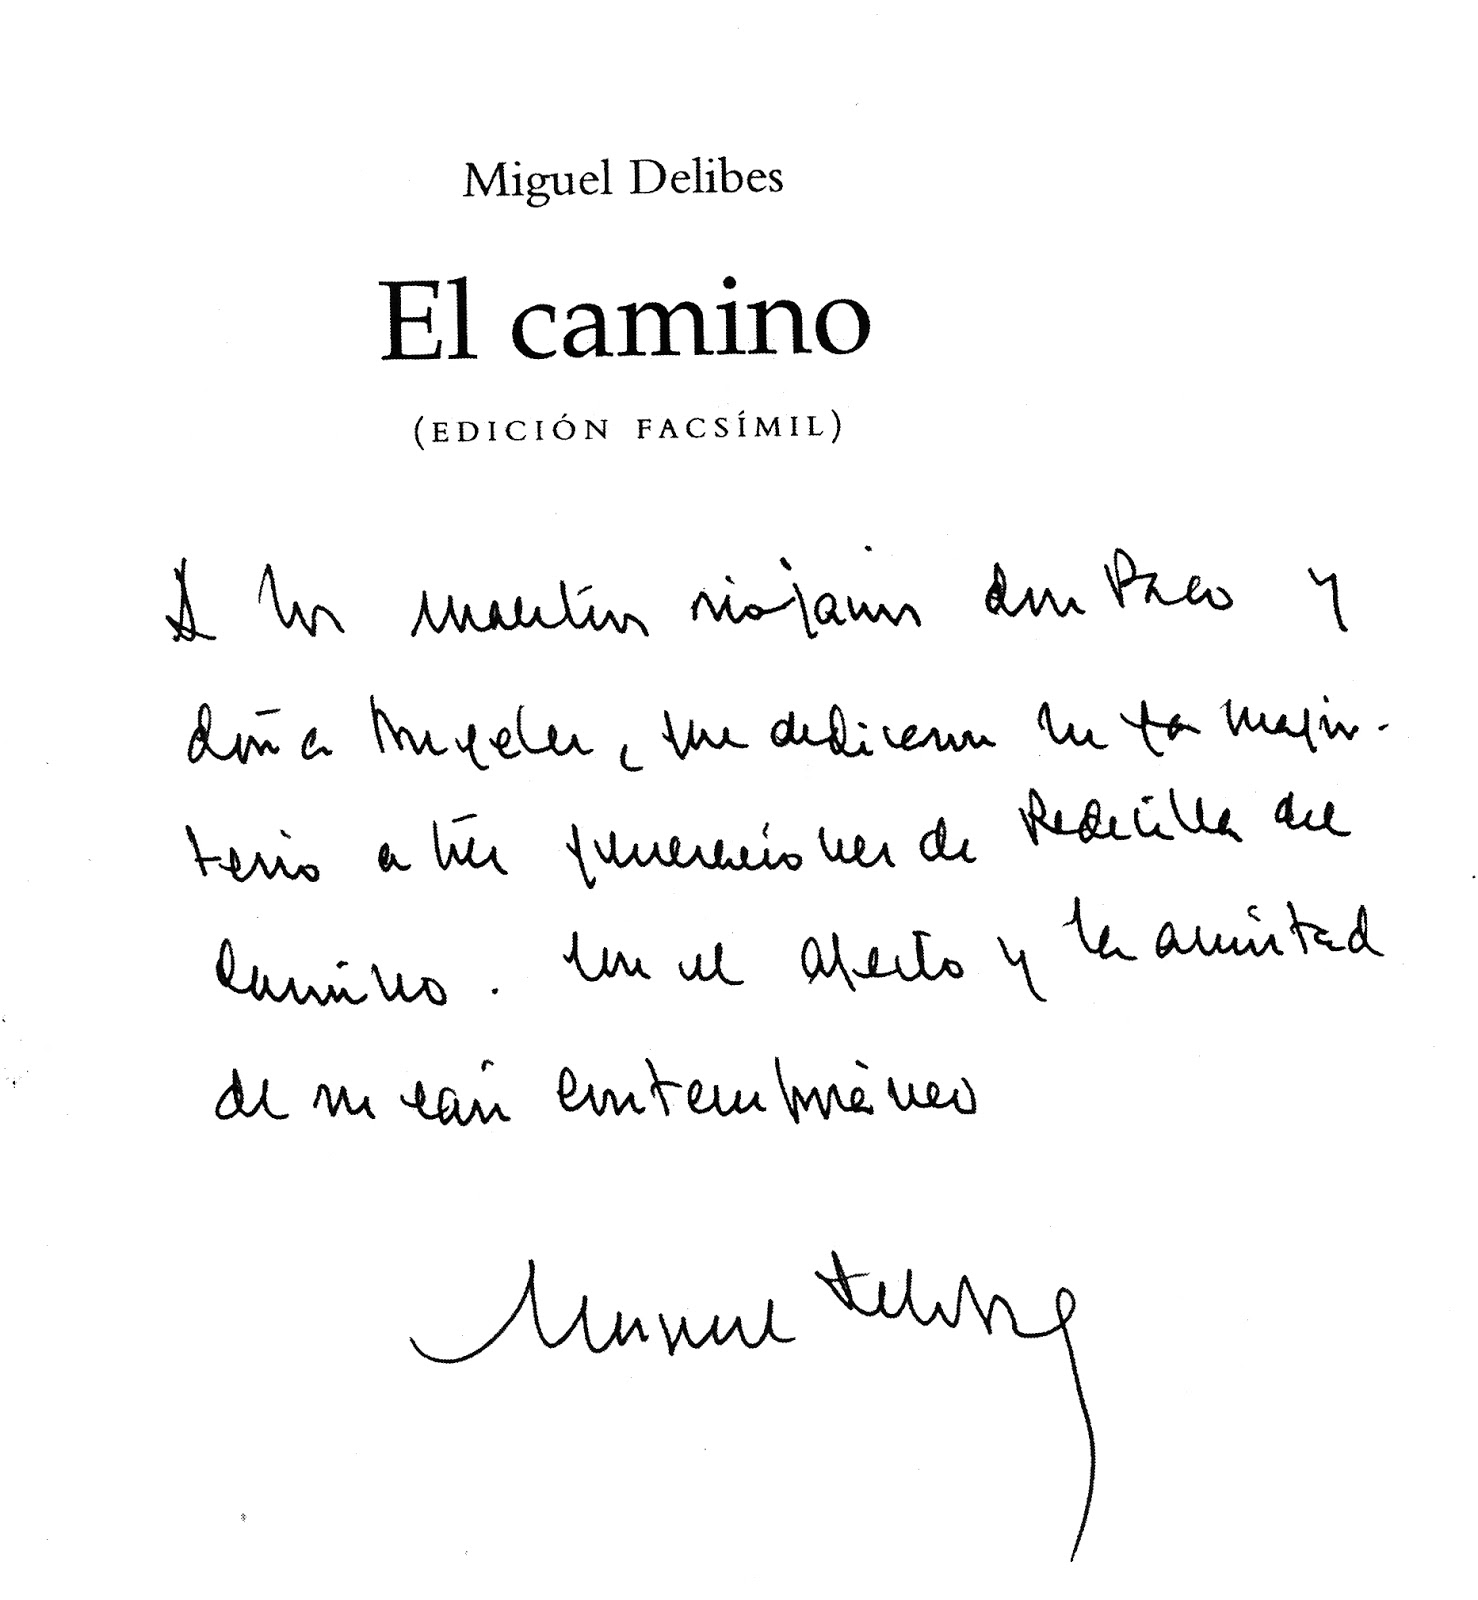 Miguel Delibes
El camino
(EDICIÓN FACSÍMIL)
A los maestros riojanos don Paco y
doña Angeles, que dedicaron su magis-
terio a tres generaciones de Redecilla del
Camino. Con el afecto y la amistad
de su casi contemporáneo
Miguel Delibes